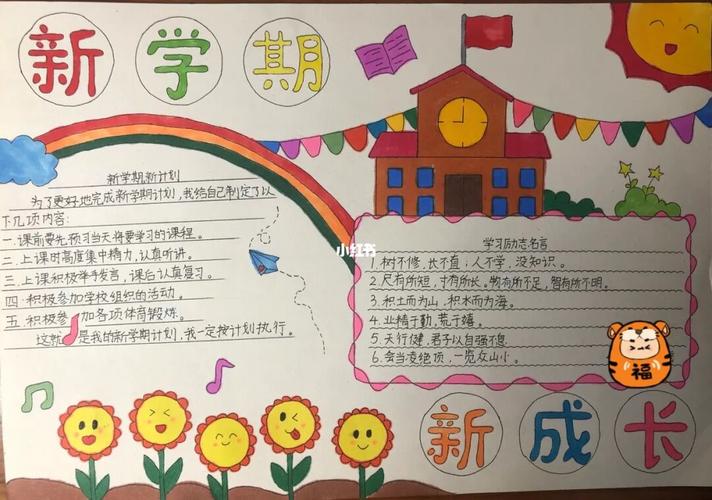 新学期
新学期新计划
为了更好地完成新学期计划，我给自己制定了以
下几项内容：
一.课前要先预习当天将要学习的课程。
二.上课时高度集中精力，认真听讲。
三.上课积极举手发言，课后认真复习。
四.积极参加学校组织的活动。
五.积极参加各项体育锻炼。
这就是我的新学期计划，我一定按计划执行。
小红书
学习励志名言
1.树不修，长不直；人不学，没知识。
2.尺有所短，寸有所长。物有所不足，智有所不明。
3.积土而为山，积水而为海。
4.业精于勤，荒于嬉。
5.天行健，君子以自强不息。
6.会当凌绝顶，一览众山小。
福
新成长